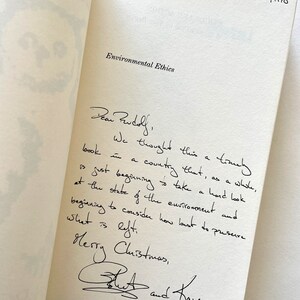 Environmental Ethics
Dear Rudolf,
We thought this a timely
book in a country that, as a whole,
is just beginning to take a hard look
at the state of the environment and
beginning to consider how best to preserve
what is left.
Merry Christmas,
and